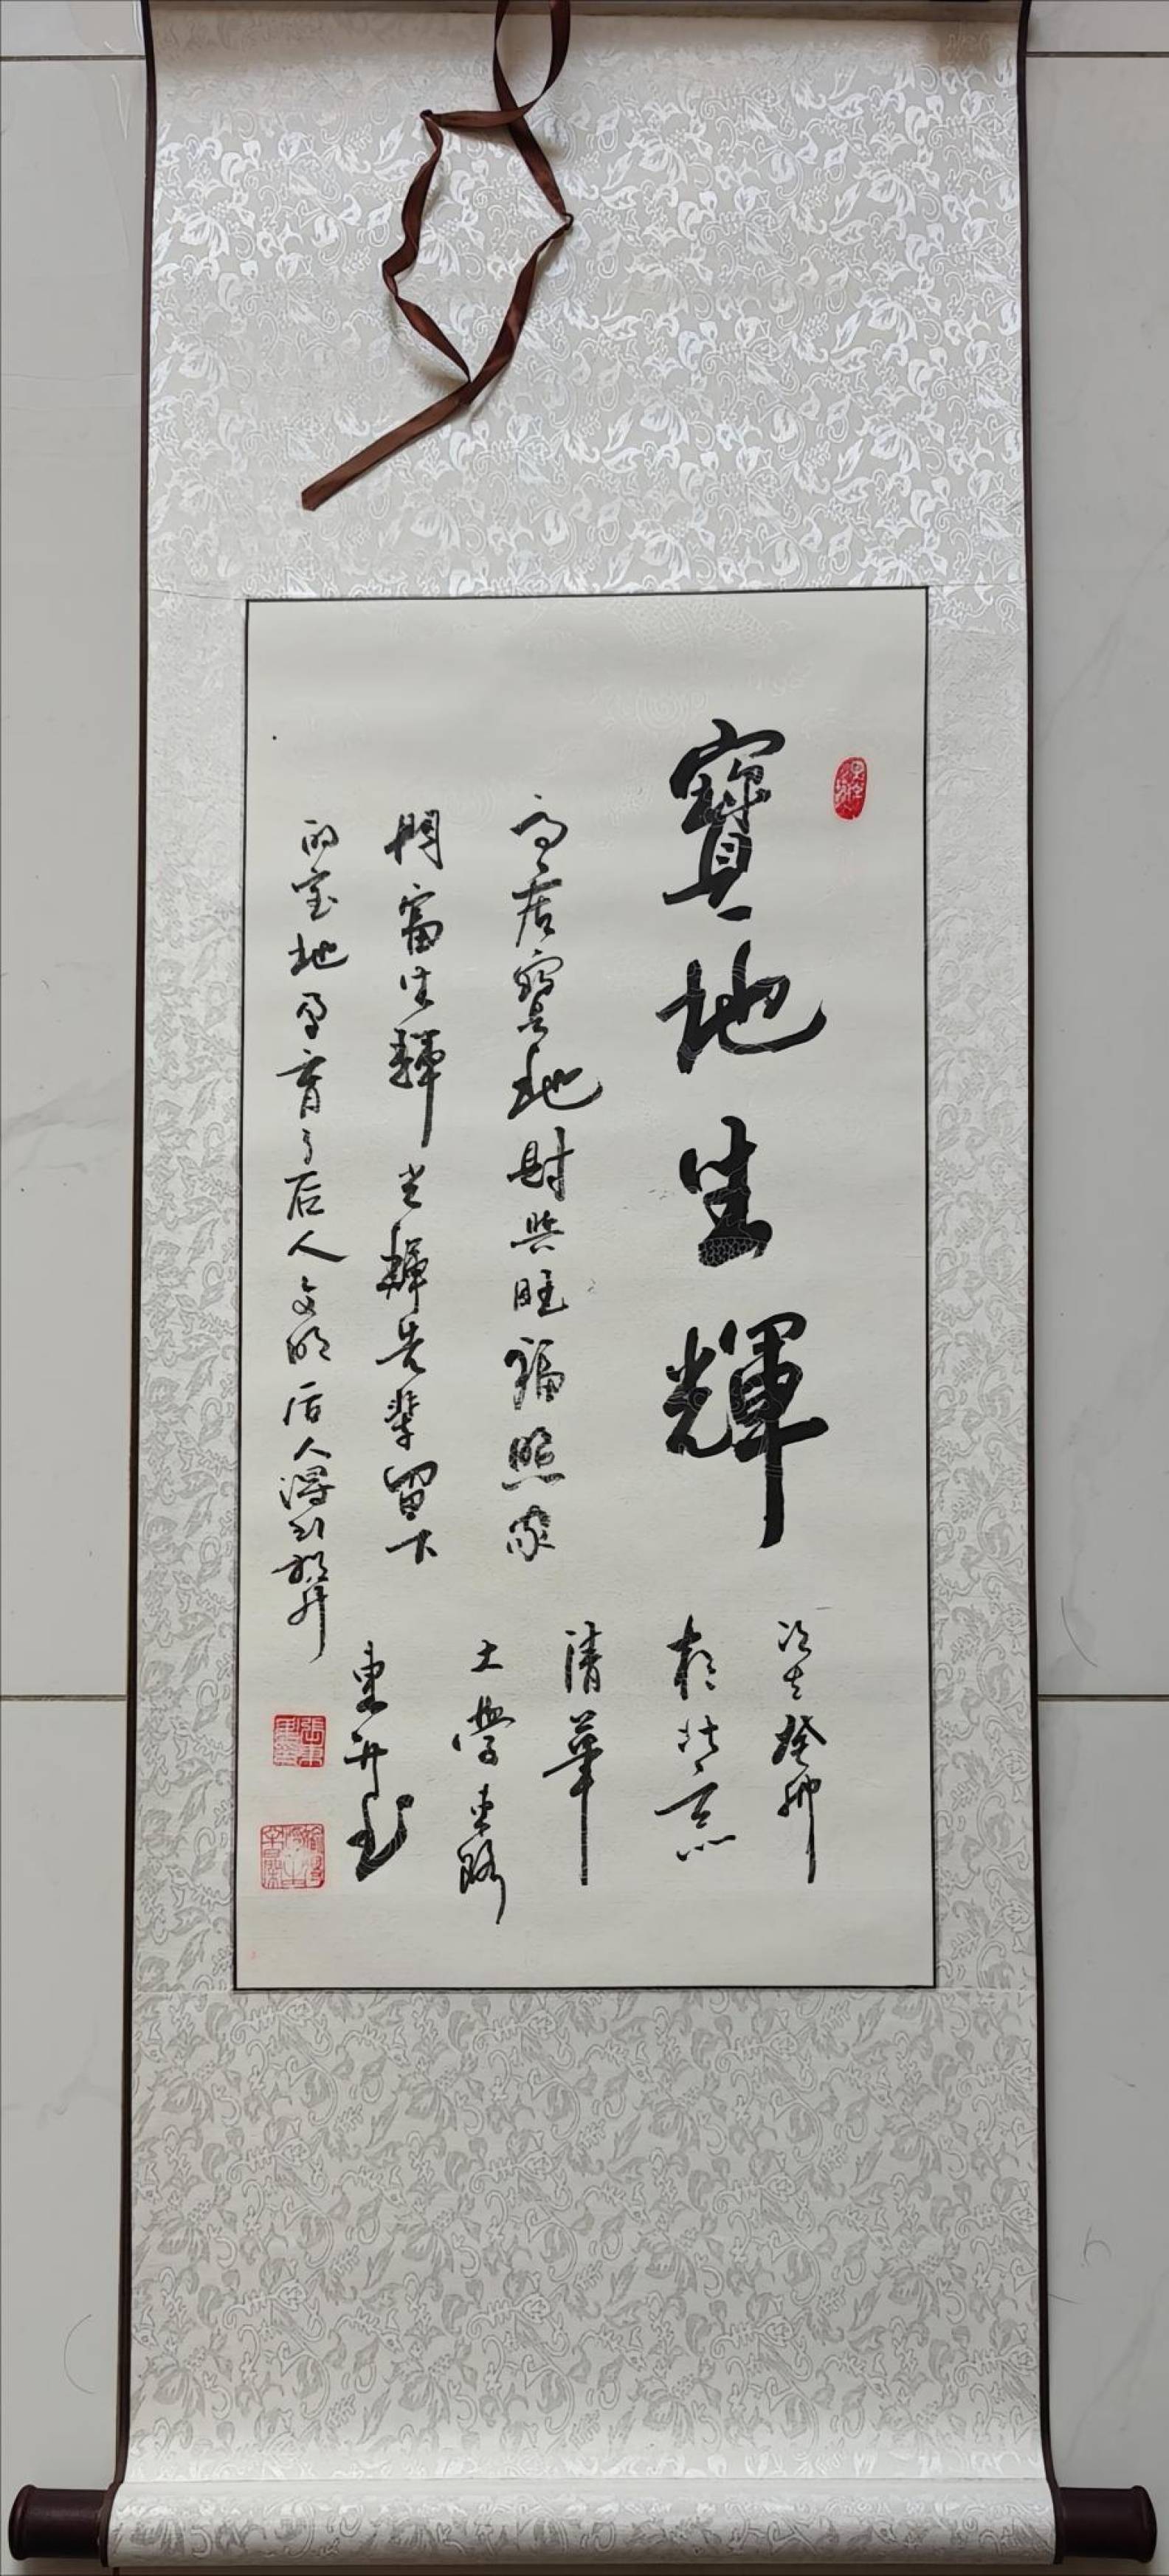 寶地生輝
高居寳地財興旺福照家
門富生輝光輝先輩留下
的宝地孕育了后人文明后人得到提升
次在癸卯
於北京
清華
大學東路
東升書